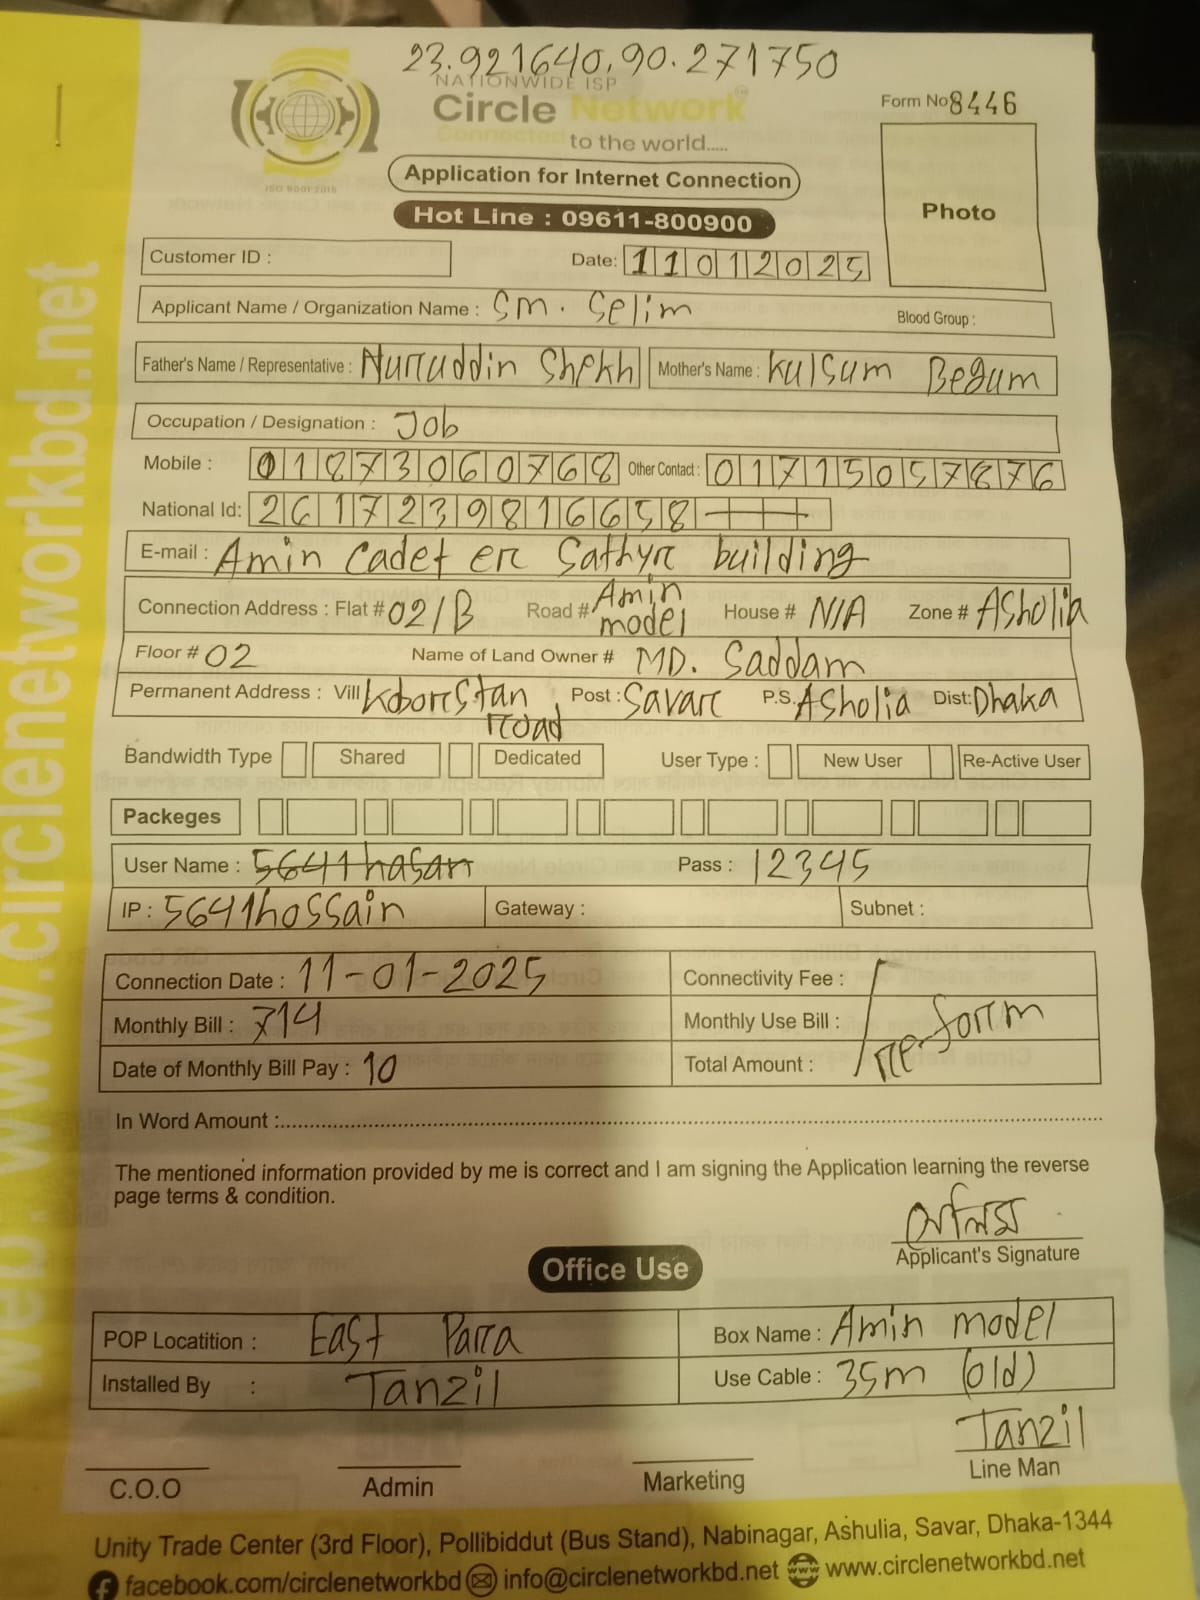 23.921640,90.271750
NATIONWIDE ISP
Circle Network
Connected
to the world.....
ISO 9001:2015
Form No 8446
Application for Internet Connection
Hot Line : 09611-800900
Photo
Customer ID :
Date: 11012025
Applicant Name / Organization Name : SM. Selim
Blood Group :
Father's Name / Representative : Nurruddin Shekh Mother's Name : Kulsum Begum
Occupation / Designation : Job
Mobile : 01873060768 Other Contact : 01715057876
National Id: 2617239816658
E-mail : Amin Cadet er Sathyr building
Connection Address : Flat # 02/B Road # Amin model House # N/A Zone # Asholia
Floor # 02 Name of Land Owner # MD. Saddam
Permanent Address : Vill Koborstan road Post : Savar P.S. Asholia Dist: Dhaka
Bandwidth Type Shared Dedicated User Type : New User Re-Active User
Packeges
User Name : 5641hasan Pass : 12345
IP : 5641hossain Gateway : Subnet :
Connection Date : 11-01-2025 Connectivity Fee :
Monthly Bill : 714 Monthly Use Bill : re-form
Date of Monthly Bill Pay : 10 Total Amount :
In Word Amount :
The mentioned information provided by me is correct and I am signing the Application learning the reverse
page terms & condition.
সেলিম
Applicant's Signature
Office Use
POP Locatition : East Para Box Name : Amin model
Installed By : Tanzil Use Cable : 35m (old)
Tanzil
C.O.O Admin Marketing Line Man
Unity Trade Center (3rd Floor), Pollibiddut (Bus Stand), Nabinagar, Ashulia, Savar, Dhaka-1344
facebook.com/circlenetworkbd info@circlenetworkbd.net www.circlenetworkbd.net
web: www.circlenetworkbd.net